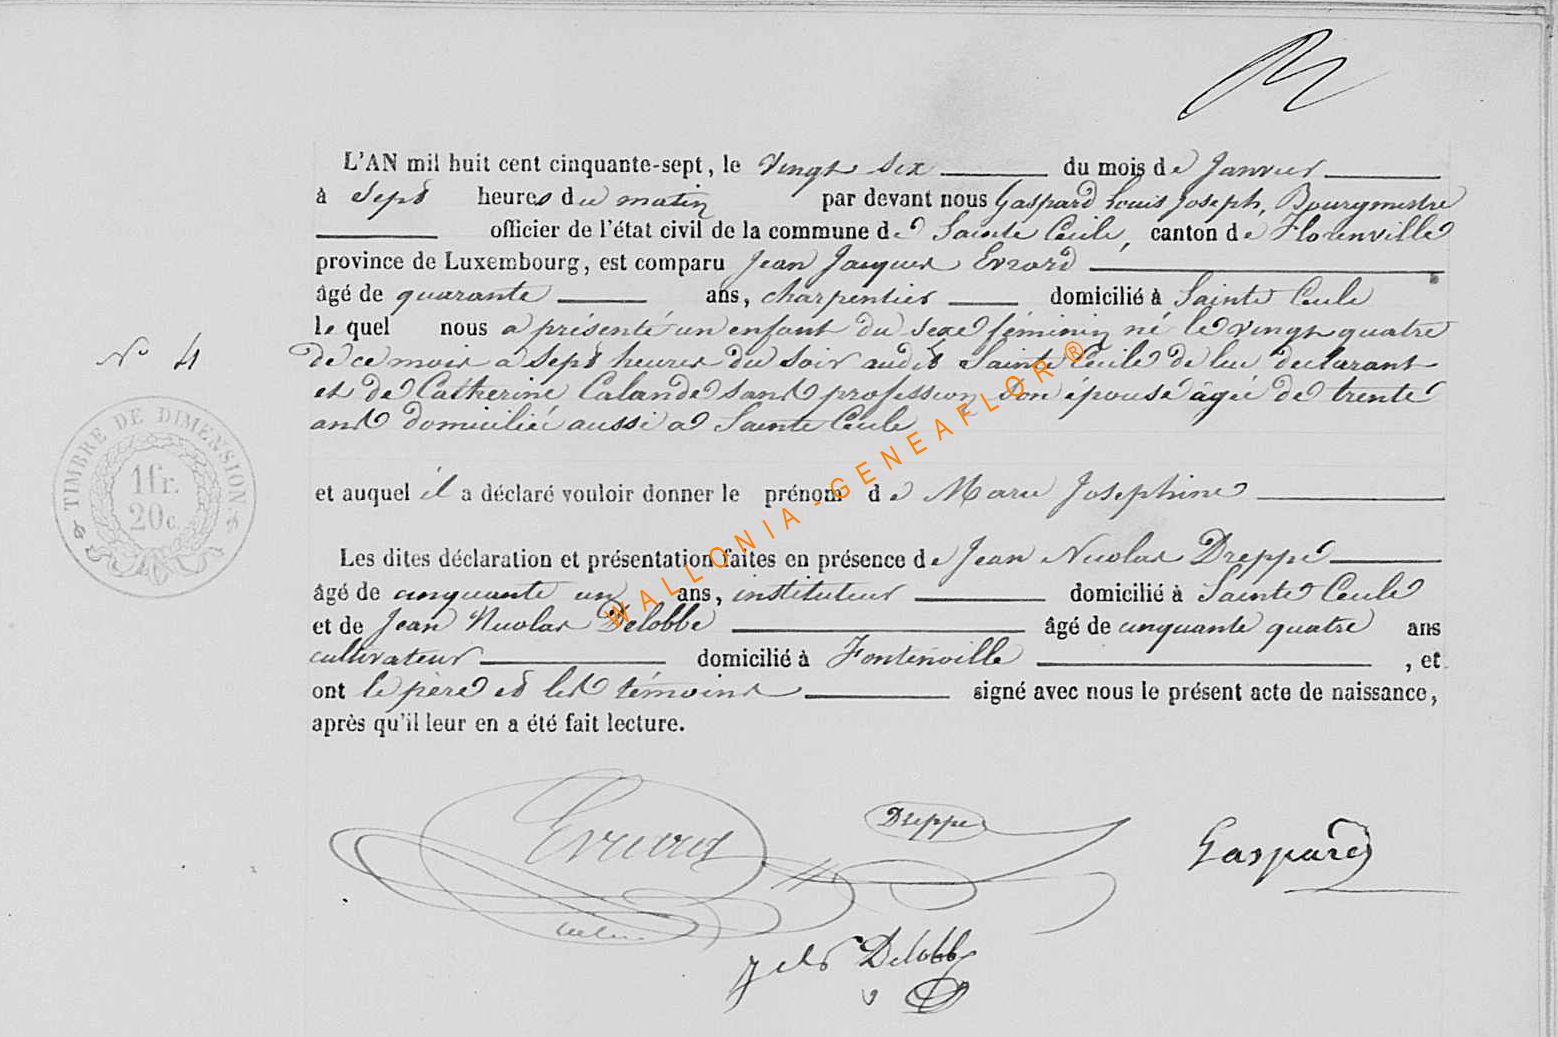 L'AN mil huit cent cinquante-sept, le vingt six du mois de Janvier
à Sept heures du matin par devant nous Gaspard Louis Joseph, Bourgmestre
officier de l'état civil de la commune de Sainte Cécile, canton de Florenville
province de Luxembourg, est comparu Jean Jacques Evrard
âgé de quarante ans, charpentier domicilié à Sainte Cecile
le quel nous a présenté un enfant du sexe féminin né le vingt quatre
N° 4
de ce mois a Sept heures du soir audit Sainte Cécile de lui déclarant
et de Catherine Calande sans profession son épouse âgée de trente
ans domiciliée aussi a Sainte Cecile
TIMBRE DE DIMENSION
1fr.
20c.
et auquel il a déclaré vouloir donner le prénom de Marie Josephine
Les dites déclaration et présentation faites en présence de Jean Nicolas Dreppe
âgé de cinquante un ans, instituteur domicilié à Sainte Cecile
et de Jean Nicolas Delobbe âgé de cinquante quatre ans
cultivateur domicilié à Fontenoille , et
ont le père et les témoins signé avec nous le présent acte de naissance,
après qu'il leur en a été fait lecture.
WALLONIA-GENEAFLOR ®
Evrard Dreppe Gaspard
Delobbe